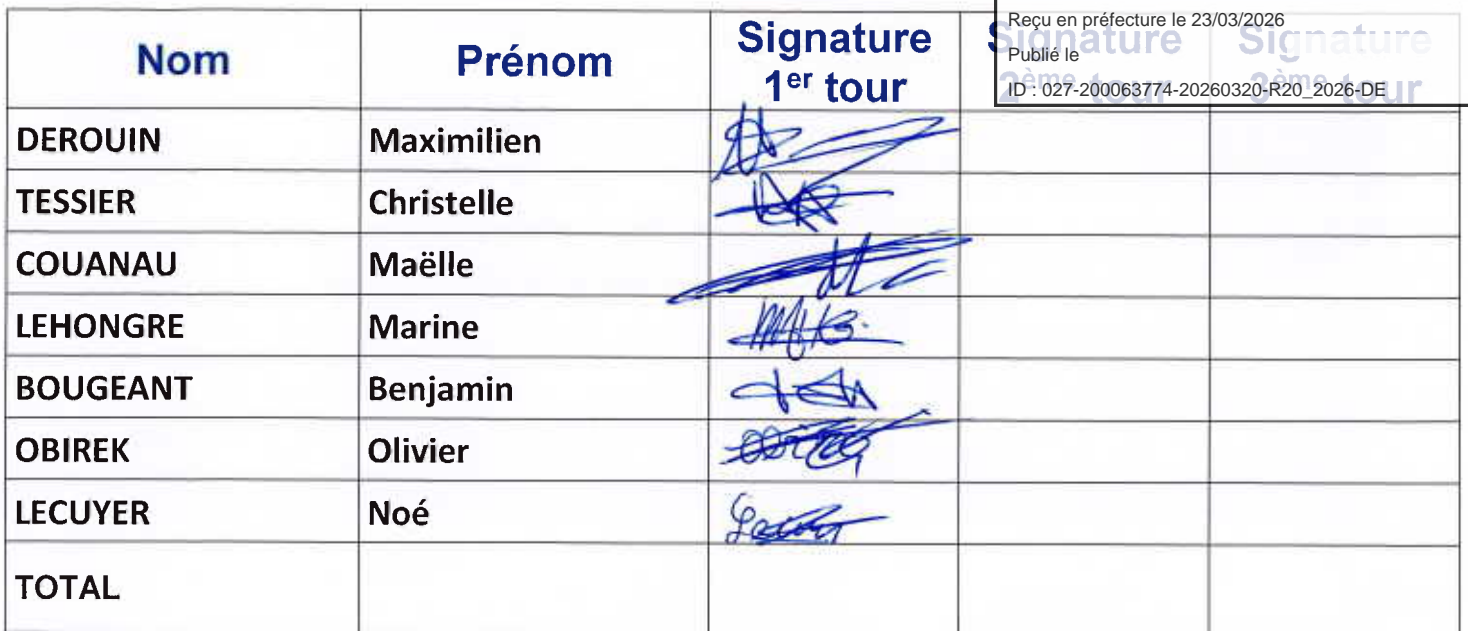 Reçu en préfecture le 23/03/2026
Publié le
ID : 027-200063774-20260320-R20_2026-DE
Nom Prénom Signature 1er tour Signature 2ème tour Signature 3ème tour
DEROUIN Maximilien
TESSIER Christelle
COUANAU Maëlle
LEHONGRE Marine
BOUGEANT Benjamin
OBIREK Olivier
LECUYER Noé
TOTAL